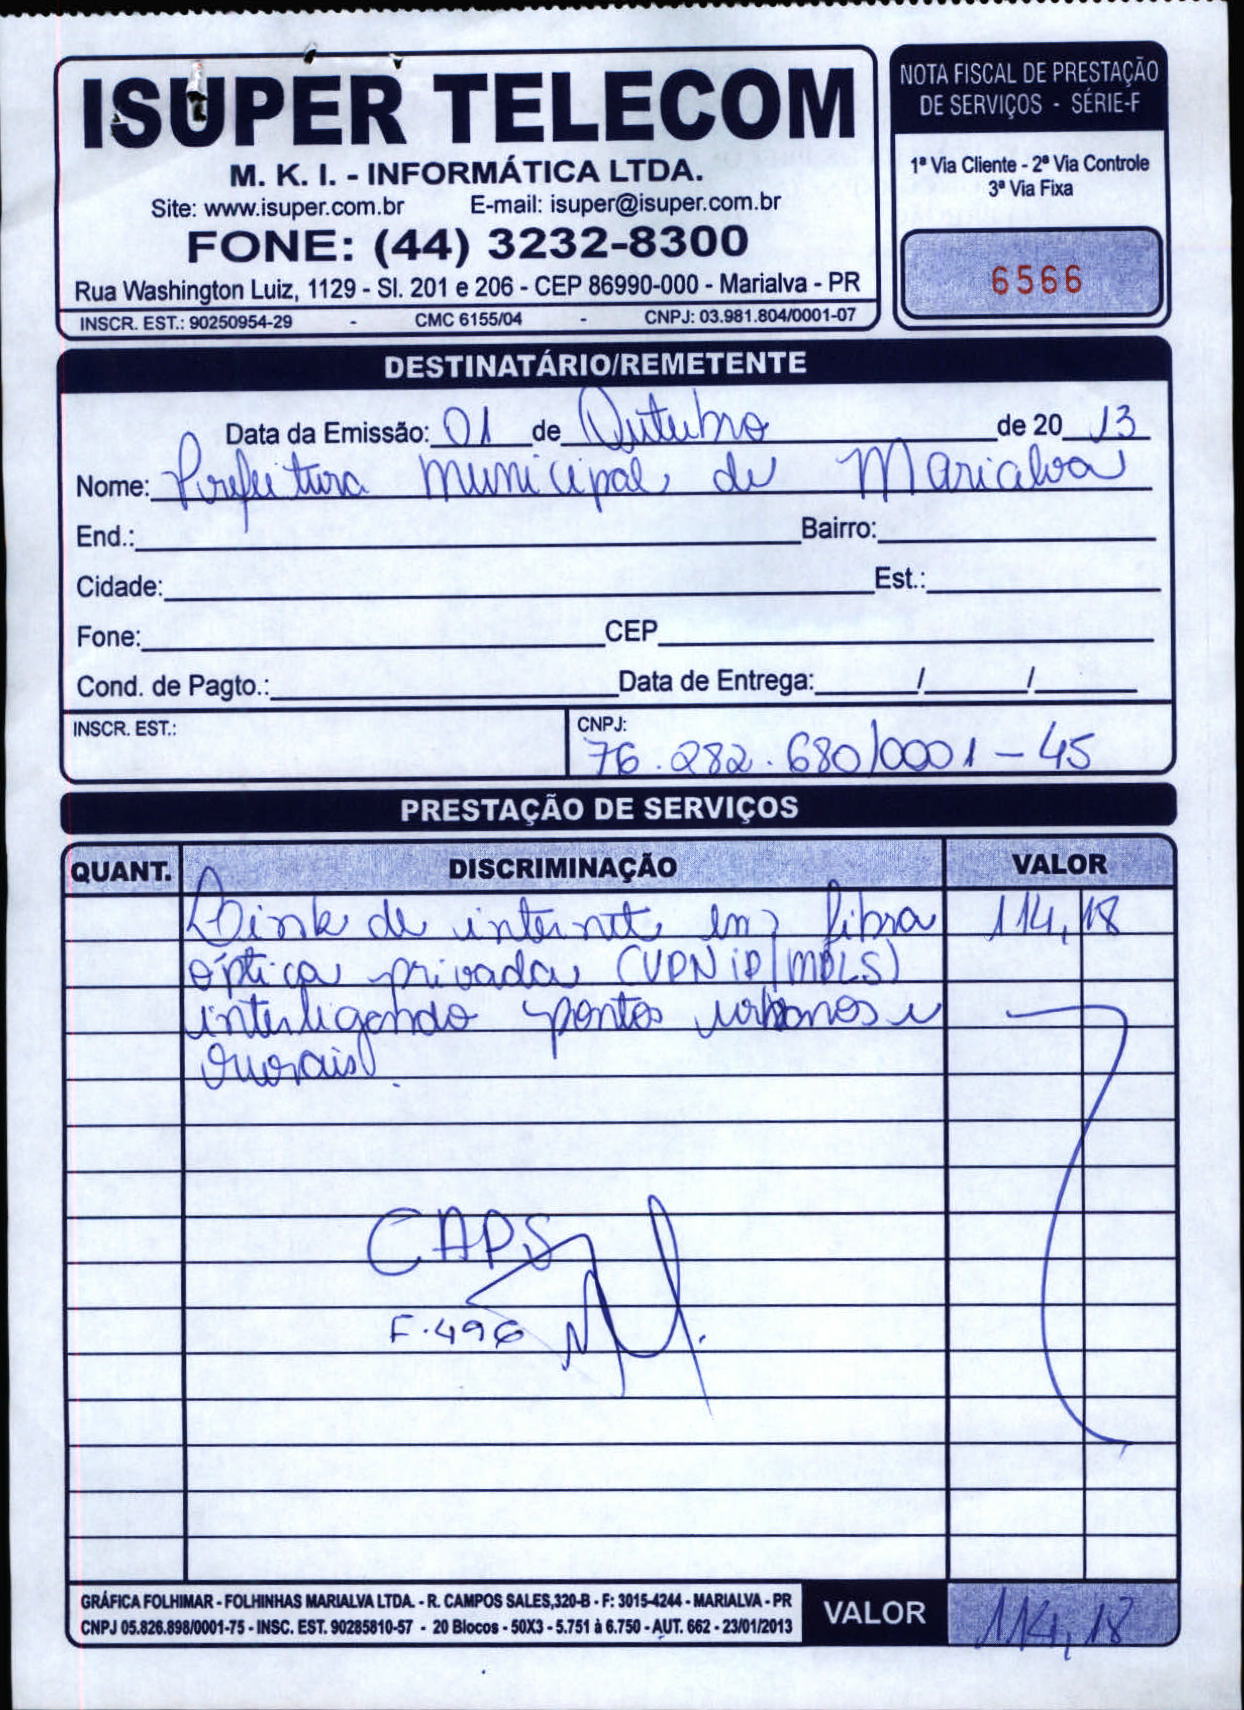 ISUPER TELECOM
M. K. I. - INFORMÁTICA LTDA.
Site: www.isuper.com.br E-mail: isuper@isuper.com.br
FONE: (44) 3232-8300
Rua Washington Luiz, 1129 - Sl. 201 e 206 - CEP 86990-000 - Marialva - PR
INSCR. EST.: 90250954-29 - CMC 6155/04 - CNPJ: 03.981.804/0001-07
NOTA FISCAL DE PRESTAÇÃO
DE SERVIÇOS - SÉRIE-F
1ª Via Cliente - 2ª Via Controle
3ª Via Fixa
6566
DESTINATÁRIO/REMETENTE
Data da Emissão: 01 de Outubro de 20 13
Nome: Prefeitura Municipal de Marialva
End.: Bairro:
Cidade: Est.:
Fone: CEP
Cond. de Pagto.: Data de Entrega: / /
INSCR. EST.: CNPJ:
76.282.680/0001-45
PRESTAÇÃO DE SERVIÇOS
QUANT. DISCRIMINAÇÃO VALOR
Link de internet em fibra 114,18
óptica privada (VPN iP/MPLS)
interligando pontos urbanos e
rurais.
CAPS
F.496
GRÁFICA FOLHIMAR - FOLHINHAS MARIALVA LTDA. - R. CAMPOS SALES,320-B - F: 3015-4244 - MARIALVA - PR
CNPJ 05.826.898/0001-75 - INSC. EST. 90285810-57 - 20 Blocos - 50X3 - 5.751 à 6.750 - AUT. 662 - 23/01/2013
VALOR 114,18